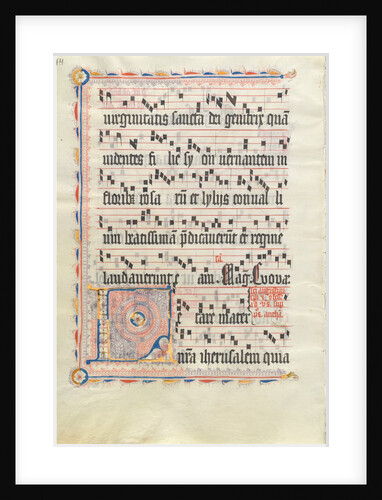 virginitatis sancta dei genitrix quā
videntes fi lie sy on vernantem in
floribꝫ rosa rū et lylys conual li
um beatissimā p̄dicauerūt et regine
laudauerunt e am. Mag. Euouae
L e tare mater
nr̄a iherusalem quia